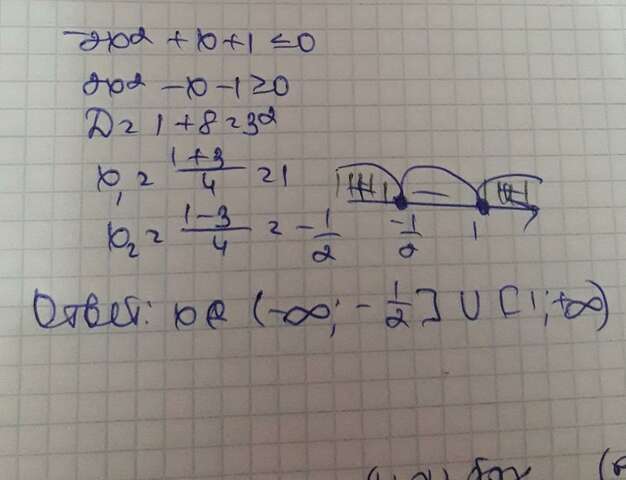 -2x² + x + 1 ≤ 0
2x² - x - 1 ≥ 0
D = 1 + 8 = 3²
x₁ = (1+3)/4 = 1
x₂ = (1-3)/4 = -1/2
+ - +
-1/2 1
Ответ: x ∈ (-∞; -1/2] ∪ [1; +∞)